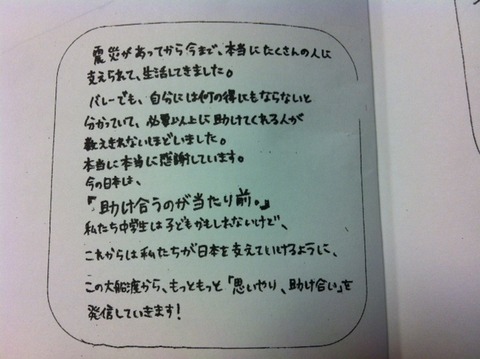 震災があってから今まで、本当にたくさんの人に
支えられて、生活してきました。
バレーでも、自分には何の得にもならないと
分かっていて、必要以上に助けてくれる人が
数えきれないほどいました。
本当に本当に感謝しています。
今の日本は、
『助け合うのが当たり前。』
私たち中学生は子どもかもしれないけど、
これからは私たちが日本を支えていけるように、
この大船渡から、もっともっと「思いやり、助け合い」を
発信していきます！